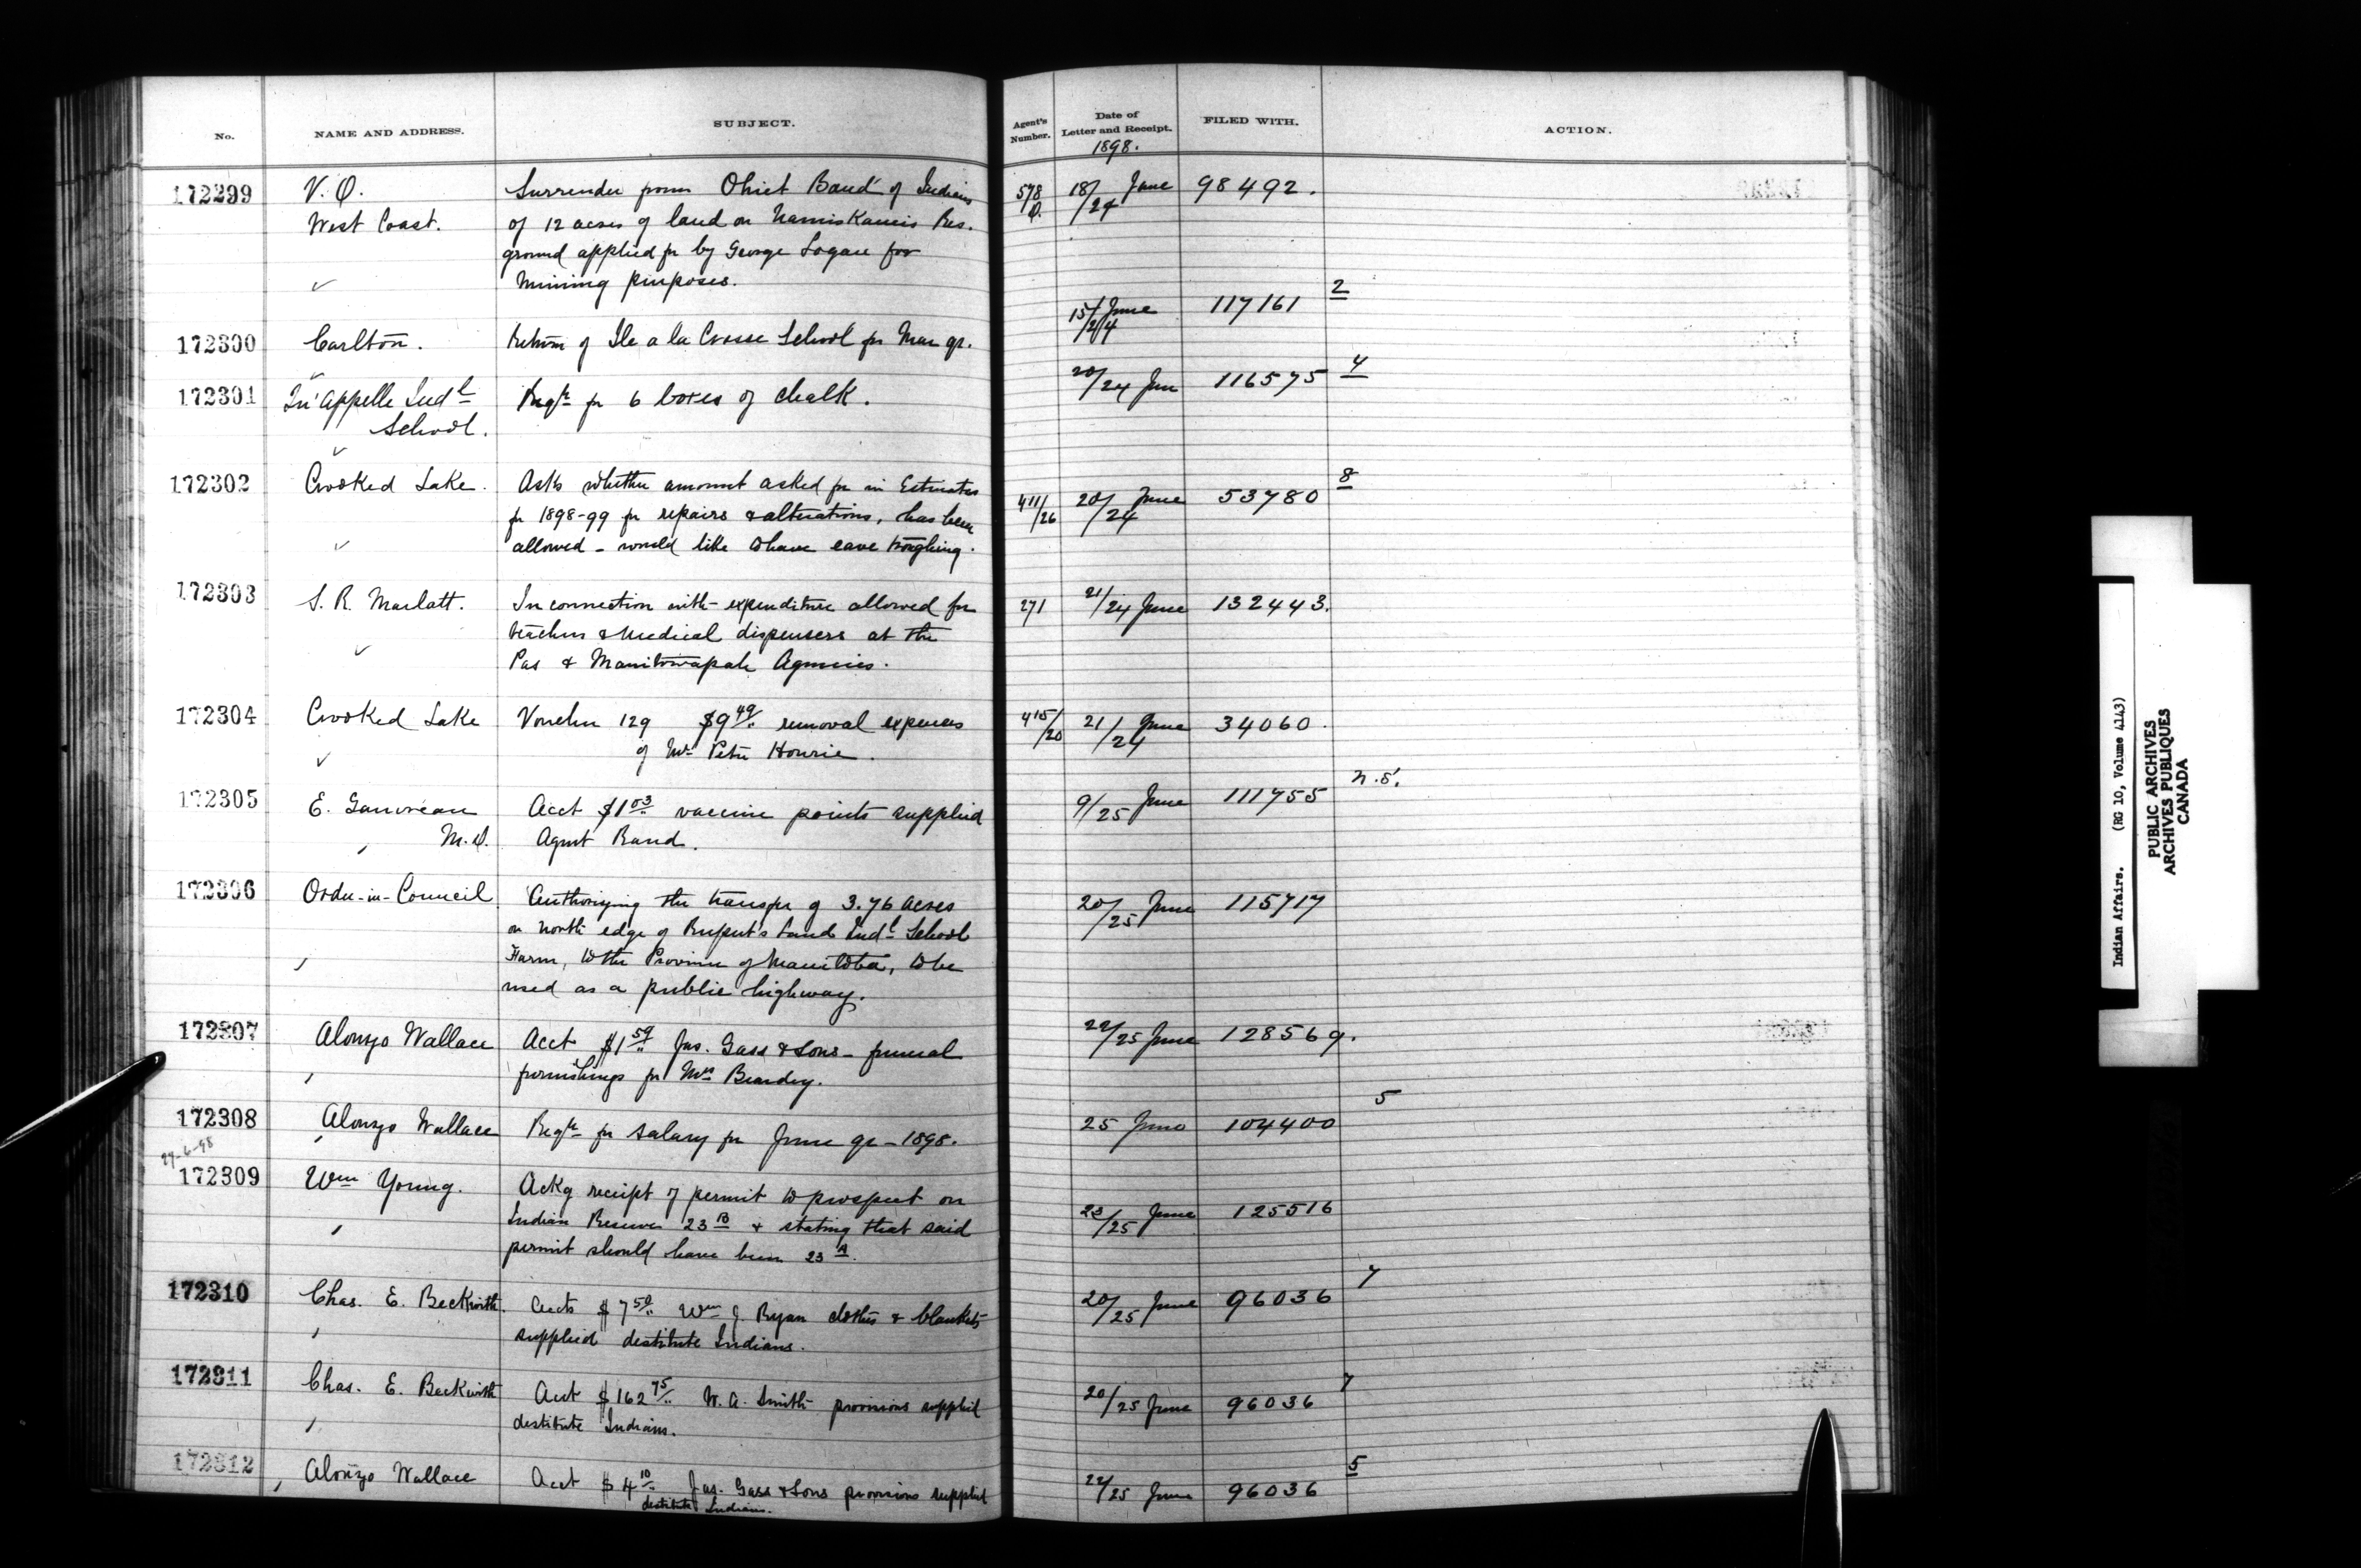 No. NAME AND ADDRESS. SUBJECT. Agent's Number. Date of Letter and Receipt. FILED WITH. ACTION.
1898.
172299 V. O. Surrender from Ohiet Band of Indians 578/O. 18/24 June 98492.
West Coast. of 12 acres of land on Res.
ground applied fr by George Logan for
mining purposes.
172300 Carlton. Return of Ile a la Crosse School fr Mar qr. 15/24 June 117161 2
172301 Qu'Appelle Indl Reqn fr 6 boxes of chalk. 20/24 Jun 116575 4
School.
172302 Crooked Lake. Asks whether amount asked fr in Estimates 411/26 20/24 June 53780 8
fr 1898-99 fr repairs & alterations, has been
allowed - would like to have eave troughing.
172303 S. R. Marlatt. In connection with expenditure allowed for 271 21/24 June 132443.
teachers & Medical dispensers at the
Pas & Manitowapah Agencies.
172304 Crooked Lake Voucher 129 $9 49/.. removal expenses 415/20 21/24 June 34060.
of Mr Peter Hourie.
172305 E. Gauvreau Acct $1 03 vaccine points supplied 9/25 June 111755 N.S.
M.D. Agent Rand.
172306 Order-in-Council Authorizing the transfer of 3.76 acres 20/25 June 115717
on north edge of Rupert's Land Indl School
Farm, to the Province of Manitoba, to be
used as a public highway.
172307 Alonzo Wallace Acct $1 59/.. Jas. Gass & Sons - funeral 22/25 June 128569.
furnishings fr Mrs
172308 Alonzo Wallace Reqn fr salary fr June qr - 1898. 25 June 104400 5
29-6-98
172309 Wm Young. Ackg receipt of permit to prospect on 23/25 June 125516
Indian Reserve 23 B & stating that said
permit should have been 23 A.
172310 Chas. E. Beckwith. Accts $7 50/.. Wm J. Ryan clothes & blankets 20/25 June 96036 7
supplied destitute Indians.
172311 Chas. E. Beckwith Acct $162 75/.. W. A. Smith provisions supplied 20/25 June 96036 7
destitute Indians.
172312 Alonzo Wallace Acct $4 10/.. Jas. Gass & Sons provisions supplied 22/25 June 96036 5
destitute Indians.
Indian Affairs. (RG 10, Volume 4143)
PUBLIC ARCHIVES
ARCHIVES PUBLIQUES
CANADA